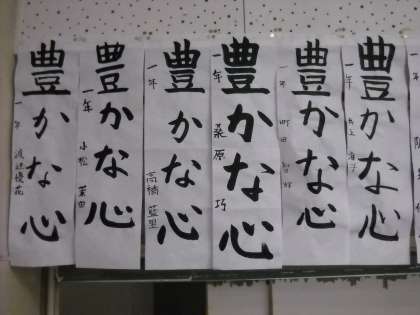 豊かな心
一年
豊かな心
一年 小松
豊かな心
一年 高橋 藍里
豊かな心
一年 桑原 巧
豊かな心
一年 町田
豊かな心
一年